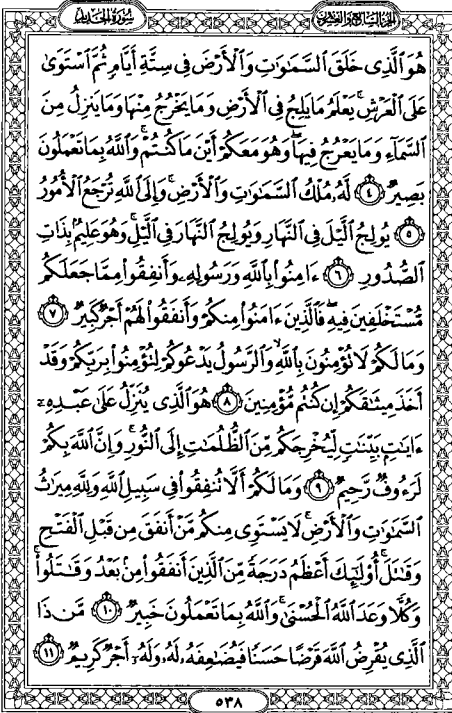 الجزء السابع والعشرون سورة الحديد
هُوَ ٱلَّذِى خَلَقَ ٱلسَّمَٰوَٰتِ وَٱلْأَرْضَ فِى سِتَّةِ أَيَّامٍ ثُمَّ ٱسْتَوَىٰ
عَلَى ٱلْعَرْشِ ۚ يَعْلَمُ مَا يَلِجُ فِى ٱلْأَرْضِ وَمَا يَخْرُجُ مِنْهَا وَمَا يَنزِلُ مِنَ
ٱلسَّمَآءِ وَمَا يَعْرُجُ فِيهَا ۖ وَهُوَ مَعَكُمْ أَيْنَ مَا كُنتُمْ ۚ وَٱللَّهُ بِمَا تَعْمَلُونَ
بَصِيرٌ ٤ لَّهُۥ مُلْكُ ٱلسَّمَٰوَٰتِ وَٱلْأَرْضِ ۚ وَإِلَى ٱللَّهِ تُرْجَعُ ٱلْأُمُورُ
٥ يُولِجُ ٱلَّيْلَ فِى ٱلنَّهَارِ وَيُولِجُ ٱلنَّهَارَ فِى ٱلَّيْلِ ۚ وَهُوَ عَلِيمٌۢ بِذَاتِ
ٱلصُّدُورِ ٦ ءَامِنُوا۟ بِٱللَّهِ وَرَسُولِهِۦ وَأَنفِقُوا۟ مِمَّا جَعَلَكُم
مُّسْتَخْلَفِينَ فِيهِ ۖ فَٱلَّذِينَ ءَامَنُوا۟ مِنكُمْ وَأَنفَقُوا۟ لَهُمْ أَجْرٌ كَبِيرٌ ٧
وَمَا لَكُمْ لَا تُؤْمِنُونَ بِٱللَّهِ ۙ وَٱلرَّسُولُ يَدْعُوكُمْ لِتُؤْمِنُوا۟ بِرَبِّكُمْ وَقَدْ
أَخَذَ مِيثَٰقَكُمْ إِن كُنتُم مُّؤْمِنِينَ ٨ هُوَ ٱلَّذِى يُنَزِّلُ عَلَىٰ عَبْدِهِۦٓ
ءَايَٰتٍۭ بَيِّنَٰتٍ لِّيُخْرِجَكُم مِّنَ ٱلظُّلُمَٰتِ إِلَى ٱلنُّورِ ۚ وَإِنَّ ٱللَّهَ بِكُمْ
لَرَءُوفٌ رَّحِيمٌ ٩ وَمَا لَكُمْ أَلَّا تُنفِقُوا۟ فِى سَبِيلِ ٱللَّهِ وَلِلَّهِ مِيرَٰثُ
ٱلسَّمَٰوَٰتِ وَٱلْأَرْضِ ۚ لَا يَسْتَوِى مِنكُم مَّنْ أَنفَقَ مِن قَبْلِ ٱلْفَتْحِ
وَقَٰتَلَ ۚ أُو۟لَٰٓئِكَ أَعْظَمُ دَرَجَةً مِّنَ ٱلَّذِينَ أَنفَقُوا۟ مِنۢ بَعْدُ وَقَٰتَلُوا۟ ۚ
وَكُلًّا وَعَدَ ٱللَّهُ ٱلْحُسْنَىٰ ۚ وَٱللَّهُ بِمَا تَعْمَلُونَ خَبِيرٌ ١٠ مَّن ذَا
ٱلَّذِى يُقْرِضُ ٱللَّهَ قَرْضًا حَسَنًا فَيُضَٰعِفَهُۥ لَهُۥ وَلَهُۥٓ أَجْرٌ كَرِيمٌ ١١
٥٣٨